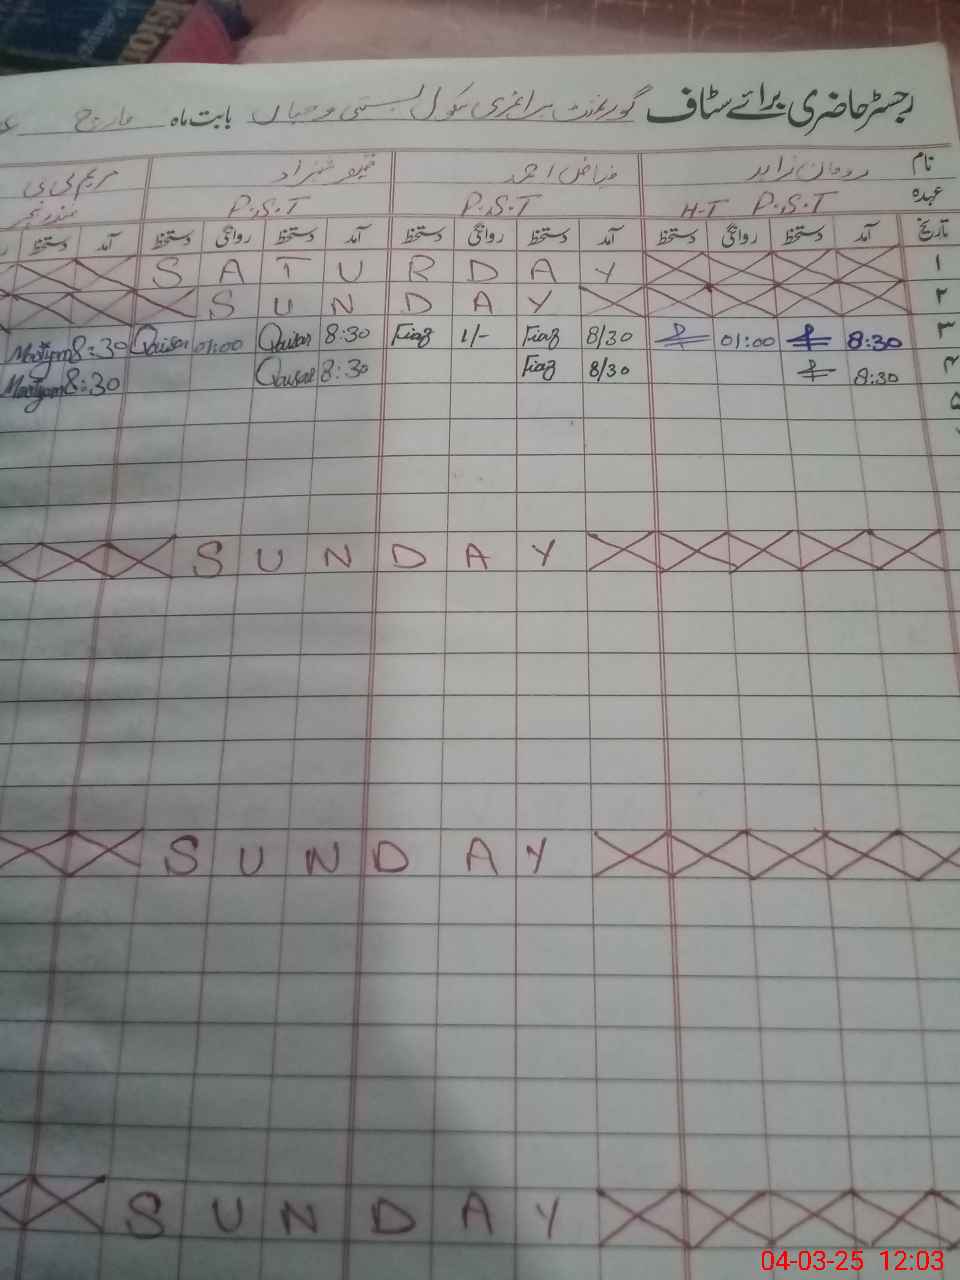 رجسٹر حاضری برائے سٹاف گورنمنٹ پرائمری سکول بستی بابت ماہ مارچ
نام رومان زاہد فیاض احمد شہزاد مریم بی بی
عہدہ P.S.T H-T P.S.T P.S.T
تاریخ آمد دستخط روانگی دستخط آمد دستخط روانگی دستخط آمد دستخط روانگی دستخط آمد دستخط
۱ SATURDAY
۲ SUNDAY
۳ 8:30 01:00 8/30 Fiaz 1/- Fiaz 8:30 Qaisar 01:00 Qaisar 8:30 Maryam
۴ 8:30 8/30 Fiaz 8:30 Qaisar 8:30 Maryam
۵
SUNDAY
SUNDAY
SUNDAY
04-03-25 12:03